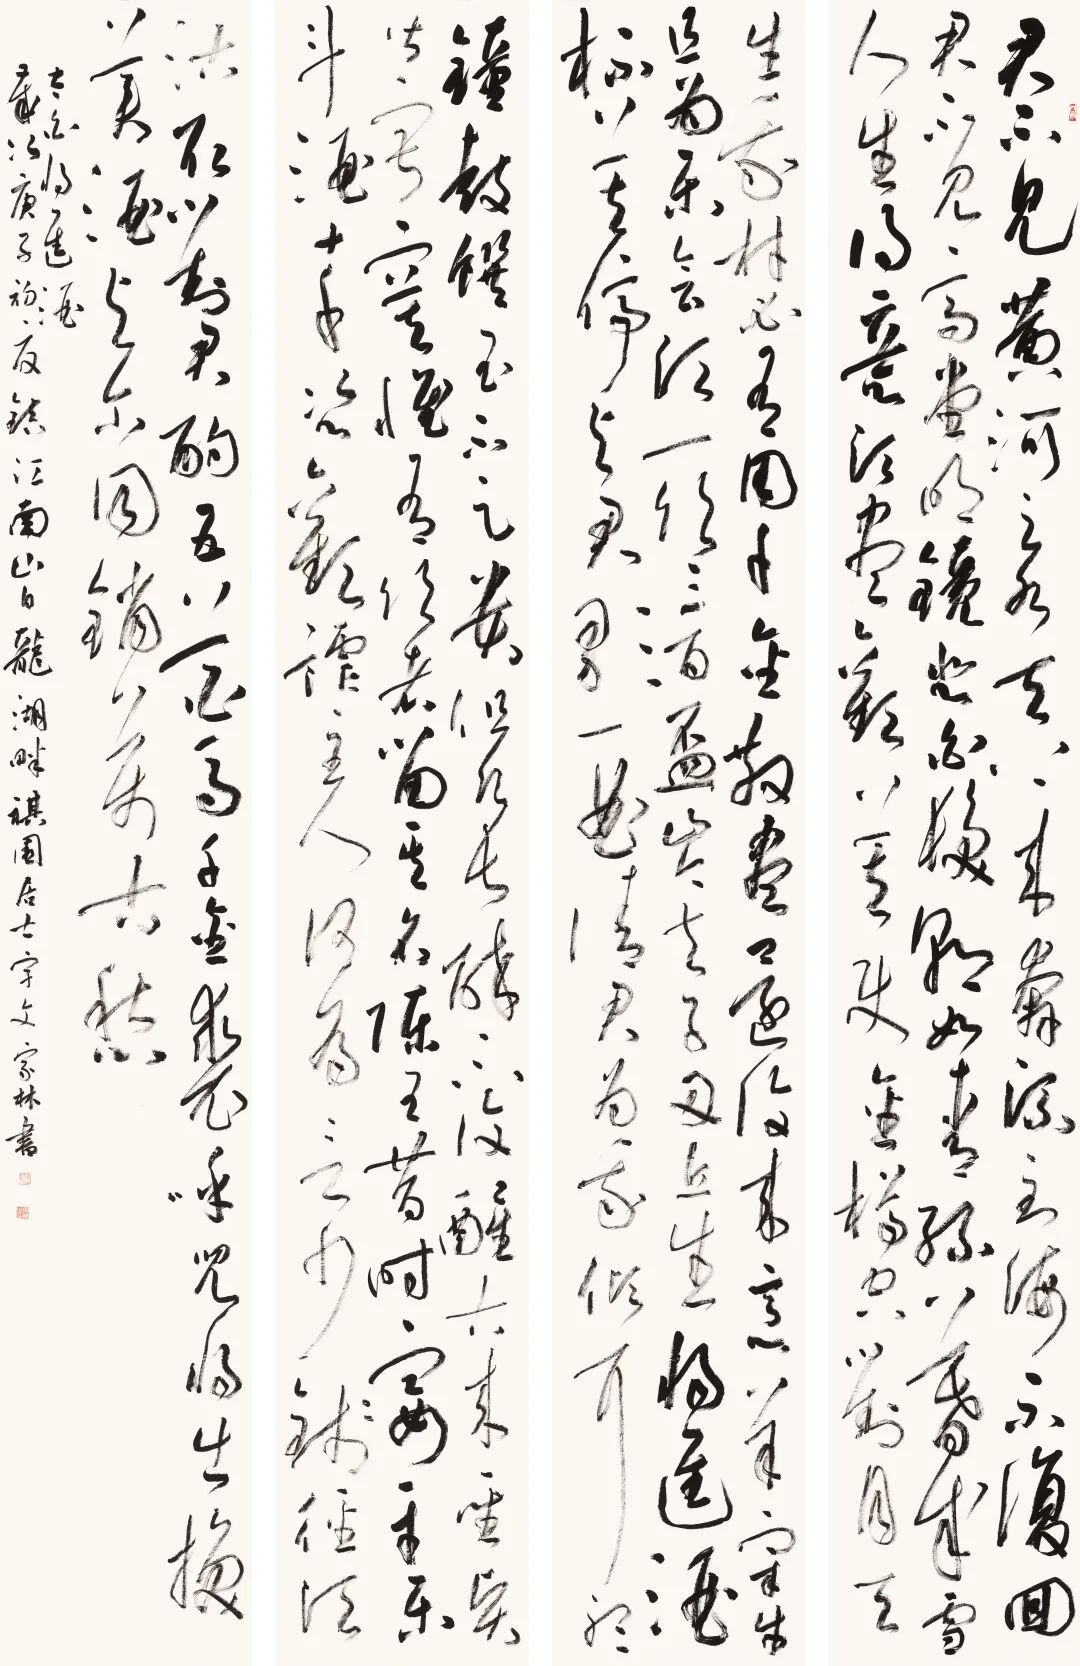 君不見黃河之水天上來奔流到海不復回
君不見高堂明鏡悲白髮朝如青絲暮成雪
人生得意須盡歡莫使金樽空對月天
生我材必有用千金散盡還復來烹羊宰牛
且為樂會須一飲三百盃岑夫子丹丘生將進酒
杯莫停與君歌一曲請君為我傾耳聽
鐘鼓饌玉不足貴但願長醉不復醒古來聖賢
皆寂寞惟有飲者留其名陳王昔時宴平樂
斗酒十千恣歡謔主人何為言少錢徑須
沽取對君酌五花馬千金裘呼兒將出換
美酒與爾同銷萬古愁
太白將進酒
歲次庚子初夏鎮江南山白龍湖畔祺園居士宇文家林書